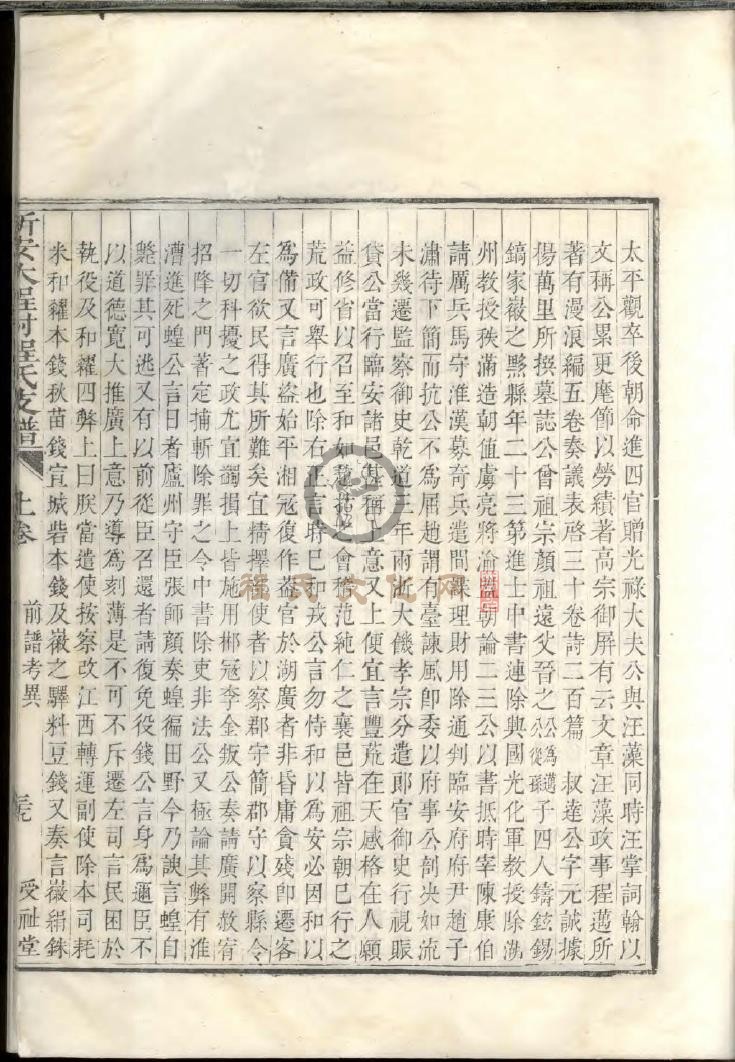 太平觀卒後朝命進四官贈光祿大夫公與汪藻同時汪掌詞翰以
文稱公累更麾節以勞績著高宗御屏有云文章汪藻政事程邁所
著有漫浪編五卷奏議表啓三十卷詩二百篇 叔達公字元誠據
楊萬里所撰墓誌公曾祖宗顏祖遠父晉之公爲邁公從孫子四人鑄鉉錫
鎬家嶶之黟縣年二十三第進士中書連除興國光化軍教授除湖
州教授秩滿造朝值虜亮將渝盟朝論二三公以書抵時宰陳康伯
請厲兵馬守淮漢募奇兵遣間諜理財用除通判臨安府府尹趙子
潚待下簡而抗公不爲屈趙謂有臺諫風卽委以府事公剖决如流
未幾遷監察御史乾道三年雨浙大饑孝宗分遣郎官御史行視賑
貸公當行臨安諸邑甚稱上意又上便宜言豐荒在天感格在人願
益修省以召至和如趙抃會稽范純仁之襄邑皆祖宗朝巳行之
荒政可舉行也除右正言時巳和戎公言勿恃和以爲安必因和以
爲備又言廣盗始平湘冦復作蓋官於湖廣者非昏庸貪殘卽遷客
左官欲民得其所難矣宜精擇使者以察郡守簡郡守以察縣令
一切科擾之政尤宜蠲損上皆施用郴冦李金叛公奏請廣開赦宥
招降之門著定捕斬除罪之令中書除吏非法公又極論其弊有淮
漕進死蝗公言日者廬州守臣張師顏奏蝗徧田野今乃諛言蝗自
斃罪其可逃又有以前從臣召還者請復免役錢公言身爲邇臣不
以道德寬大推廣上意乃導爲刻薄是不可不斥遷左司言民困於
執役及和糴四弊上曰朕當遣使按察改江西轉運副使除本司耗
米和糴本錢秋苗錢宣城砦本錢及嶶之驛料豆錢又奏言嶶絹銖
新安大程村程氏支譜 上卷 前譜考異 受祉堂
程氏文化网